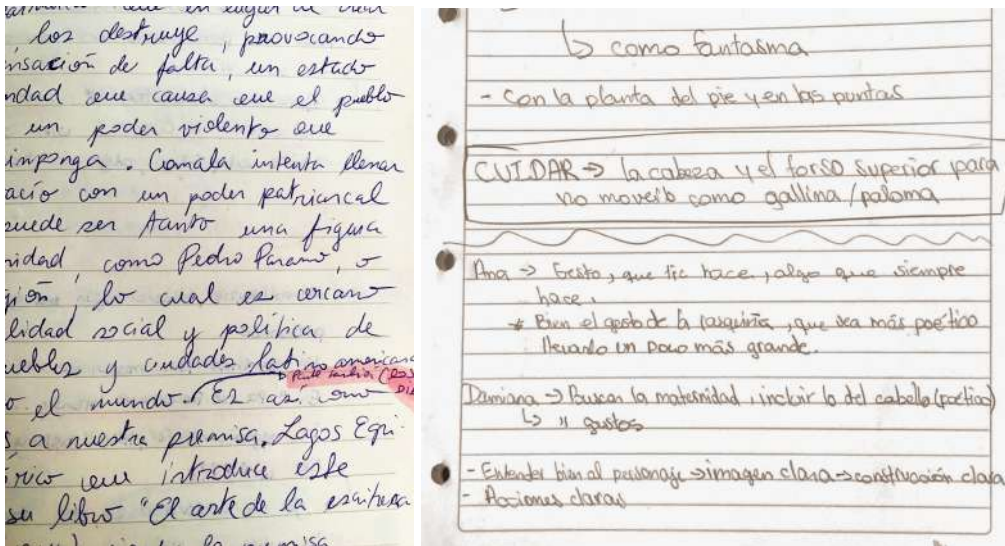 en lugar de
los destruye, provocando
nsación de falta, un estado
ndad que causa que el pueblo
un poder violento que
imponga. Comala intenta llenar
acío con un poder patriarcal
puede ser tanto una figura
ridad, como Pedro Páramo, o
gión, lo cual es cercano
lidad social y política de
ueblos y ciudades latinoamericana
o el mundo. Es así como
s a nuestra premisa. Lagos Egri
rico que introduce este
su libro "El arte de la escritura
la premisa
↳ como fantasma
- Con la planta del pie y en las puntas
CUIDAR → la cabeza y el torso superior para
no moverlo como gallina/paloma
Ana → Gesto, que tic hace, algo que siempre
hace.
* Bien el gesto de la , que sea más poético
llevarlo un poco más grande.
Damiana → Buscar la maternidad, incluir lo del cabello (poético)
↳ " gustos
- Entender bien al personaje → imagen clara → construcción clara
- Acciones claras